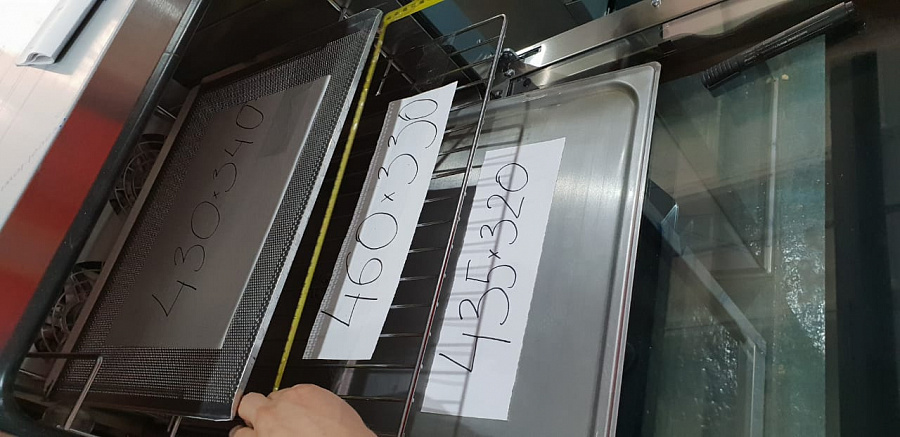 430×340
460×330
435×320